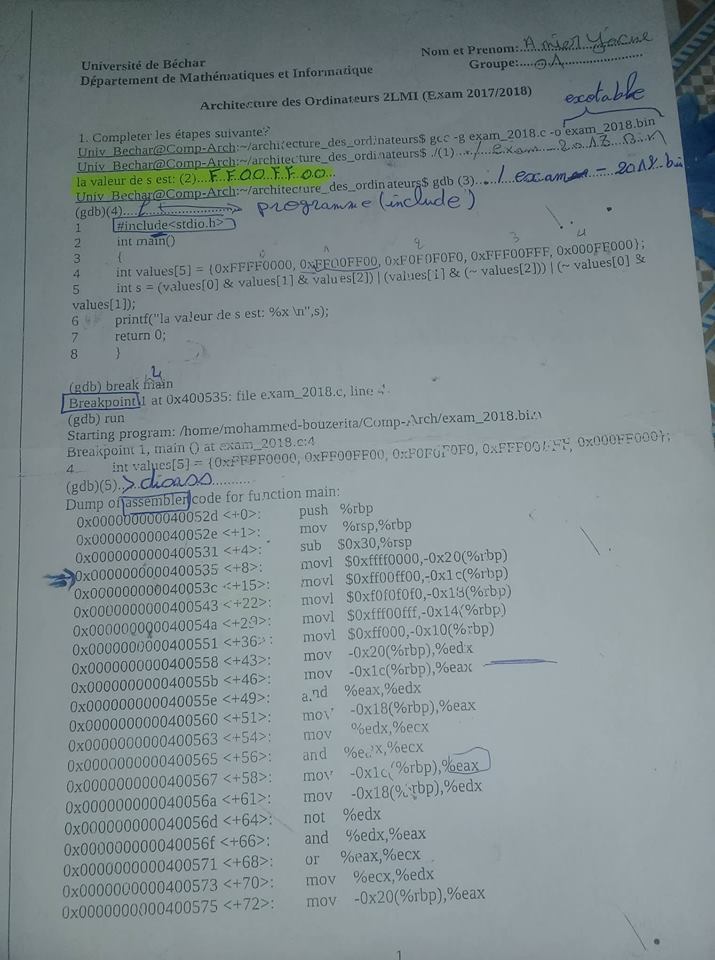 Université de Béchar
Nom et Prenom:
Département de Mathématiques et Informatique
Groupe:
Architecture des Ordinateurs 2LMI (Exam 2017/2018)
exotable
1. Completer les étapes suivante?
Univ_Bechar@Comp-Arch:~/architecture_des_ordinateurs$ gcc -g exam_2018.c -o exam_2018.bin
Univ_Bechar@Comp-Arch:~/architecture_des_ordinateurs$ ./(1)
la valeur de s est: (2)...F.F.OO.F.F.OO...
Univ_Bechar@Comp-Arch:~/architecture_des_ordinateurs$ gdb (3)
(gdb)(4) programme (include)
1 #include<stdio.h>
2 int main()
3 {
4 int values[5] = {0xFFFF0000, 0xFF00FF00, 0xF0F0F0F0, 0xFFF00FFF, 0x000FF000};
5 int s = (values[0] & values[1] & values[2]) | (values[1] & (~ values[2])) | (~ values[0] &
values[1]);
6 printf("la valeur de s est: %x \n",s);
7 return 0;
8 }
(gdb) break main
Breakpoint 1 at 0x400535: file exam_2018.c, line 4.
(gdb) run
Starting program: /home/mohammed-bouzerita/Comp-Arch/exam_2018.bin
Breakpoint 1, main () at exam_2018.c:4
4 int values[5] = {0xFFFF0000, 0xFF00FF00, 0xF0F0F0F0, 0xFFF00FFF, 0x000FF000};
(gdb)(5) > disass
Dump of assembler code for function main:
0x000000000040052d <+0>: push %rbp
0x000000000040052e <+1>: mov %rsp,%rbp
0x0000000000400531 <+4>: sub $0x30,%rsp
0x0000000000400535 <+8>: movl $0xffff0000,-0x20(%rbp)
0x000000000040053c <+15>: movl $0xff00ff00,-0x1c(%rbp)
0x0000000000400543 <+22>: movl $0xf0f0f0f0,-0x18(%rbp)
0x000000000040054a <+29>: movl $0xfff00fff,-0x14(%rbp)
0x0000000000400551 <+36>: movl $0xff000,-0x10(%rbp)
0x0000000000400558 <+43>: mov -0x20(%rbp),%edx
0x000000000040055b <+46>: mov -0x1c(%rbp),%eax
0x000000000040055e <+49>: and %eax,%edx
0x0000000000400560 <+51>: mov -0x18(%rbp),%eax
0x0000000000400563 <+54>: mov %edx,%ecx
0x0000000000400565 <+56>: and %eax,%ecx
0x0000000000400567 <+58>: mov -0x1c(%rbp),%eax
0x000000000040056a <+61>: mov -0x18(%rbp),%edx
0x000000000040056d <+64>: not %edx
0x000000000040056f <+66>: and %edx,%eax
0x0000000000400571 <+68>: or %eax,%ecx
0x0000000000400573 <+70>: mov %ecx,%edx
0x0000000000400575 <+72>: mov -0x20(%rbp),%eax
1